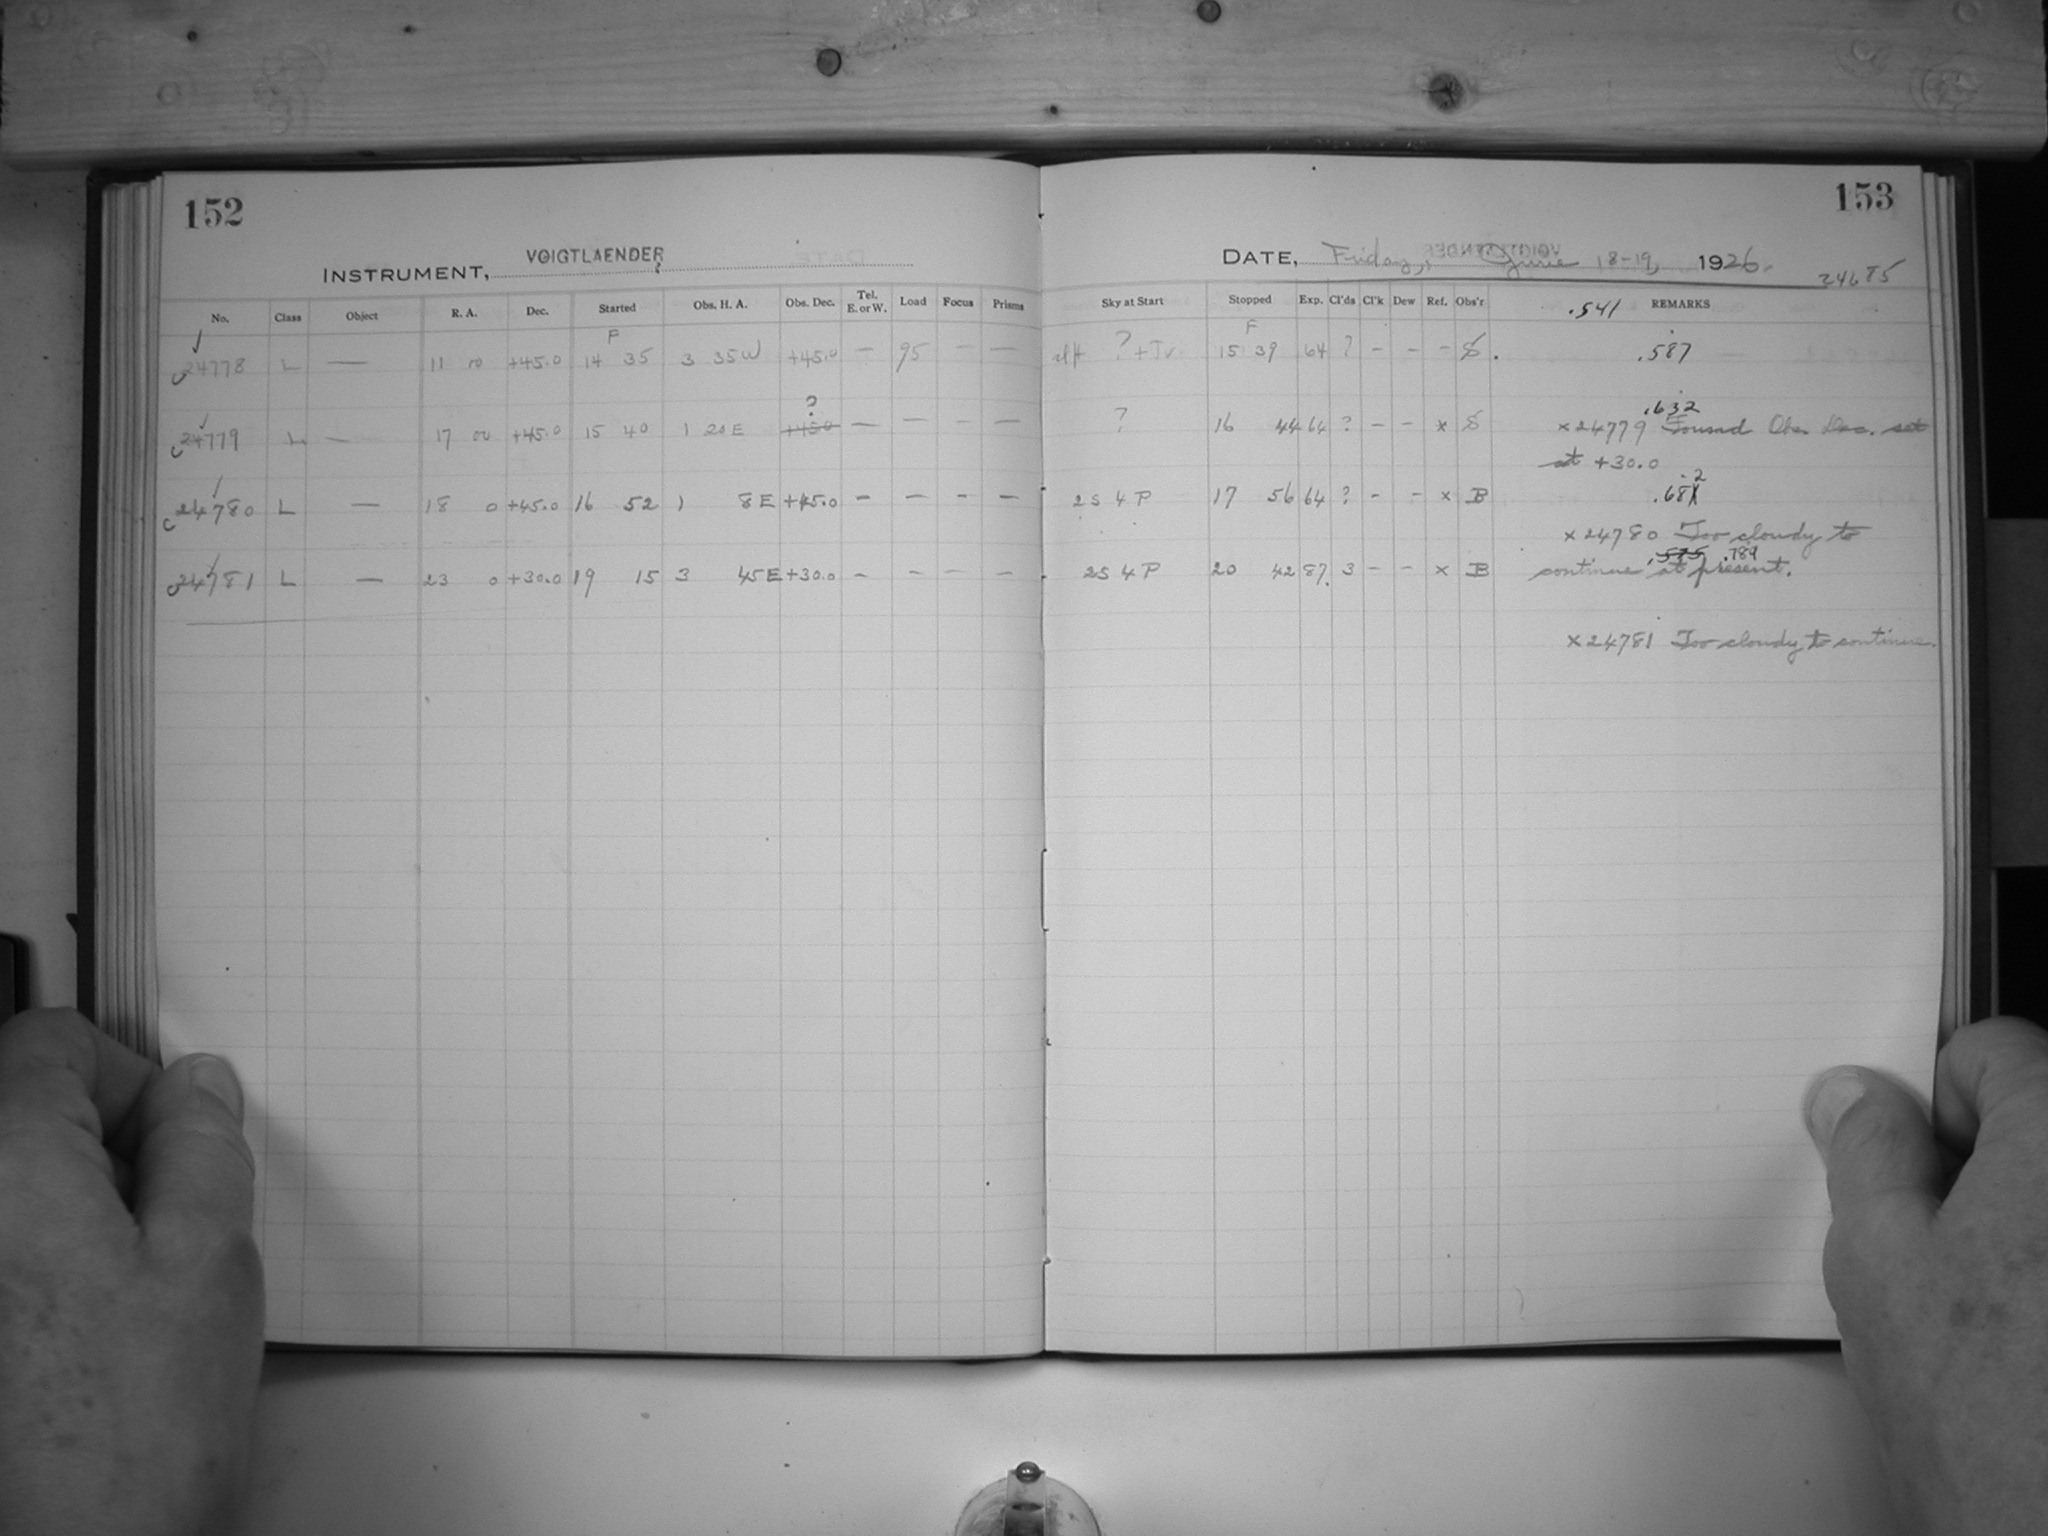 152
INSTRUMENT, VOIGTLAENDER
No. Class Object R. A. Dec. Started Obs. H. A. Obs. Dec. Tel. E. or W. Load Focus Prisms
F
24778 L — 11 00 +45.0 14 35 3 35W +45.0 — 95 — —
?
24779 L — 17 00 +45.0 15 40 1 20E +45.0 — — — —
24780 L — 18 0 +45.0 16 52 1 8E +45.0 — — — —
24781 L — 23 0 +30.0 19 15 3 45E +30.0 — — — —
153
DATE, Friday, June 18-19, 1926.
24685
Sky at Start Stopped Exp. Cl'ds Cl'k Dew Ref. Obs'r .541 REMARKS
F
? + Tv 15 39 64 ? — — — S. .587
.632
? 16 44 64 ? — — x S x24779 Found Obs. Dec. set
at +30.0
2S 4P 17 56 64 ? — — x B .681 2
x24780 Too cloudy to
.575 .789
2S 4P 20 42 87. 3 — — x B continue at present.
x24781 Too cloudy to continue.